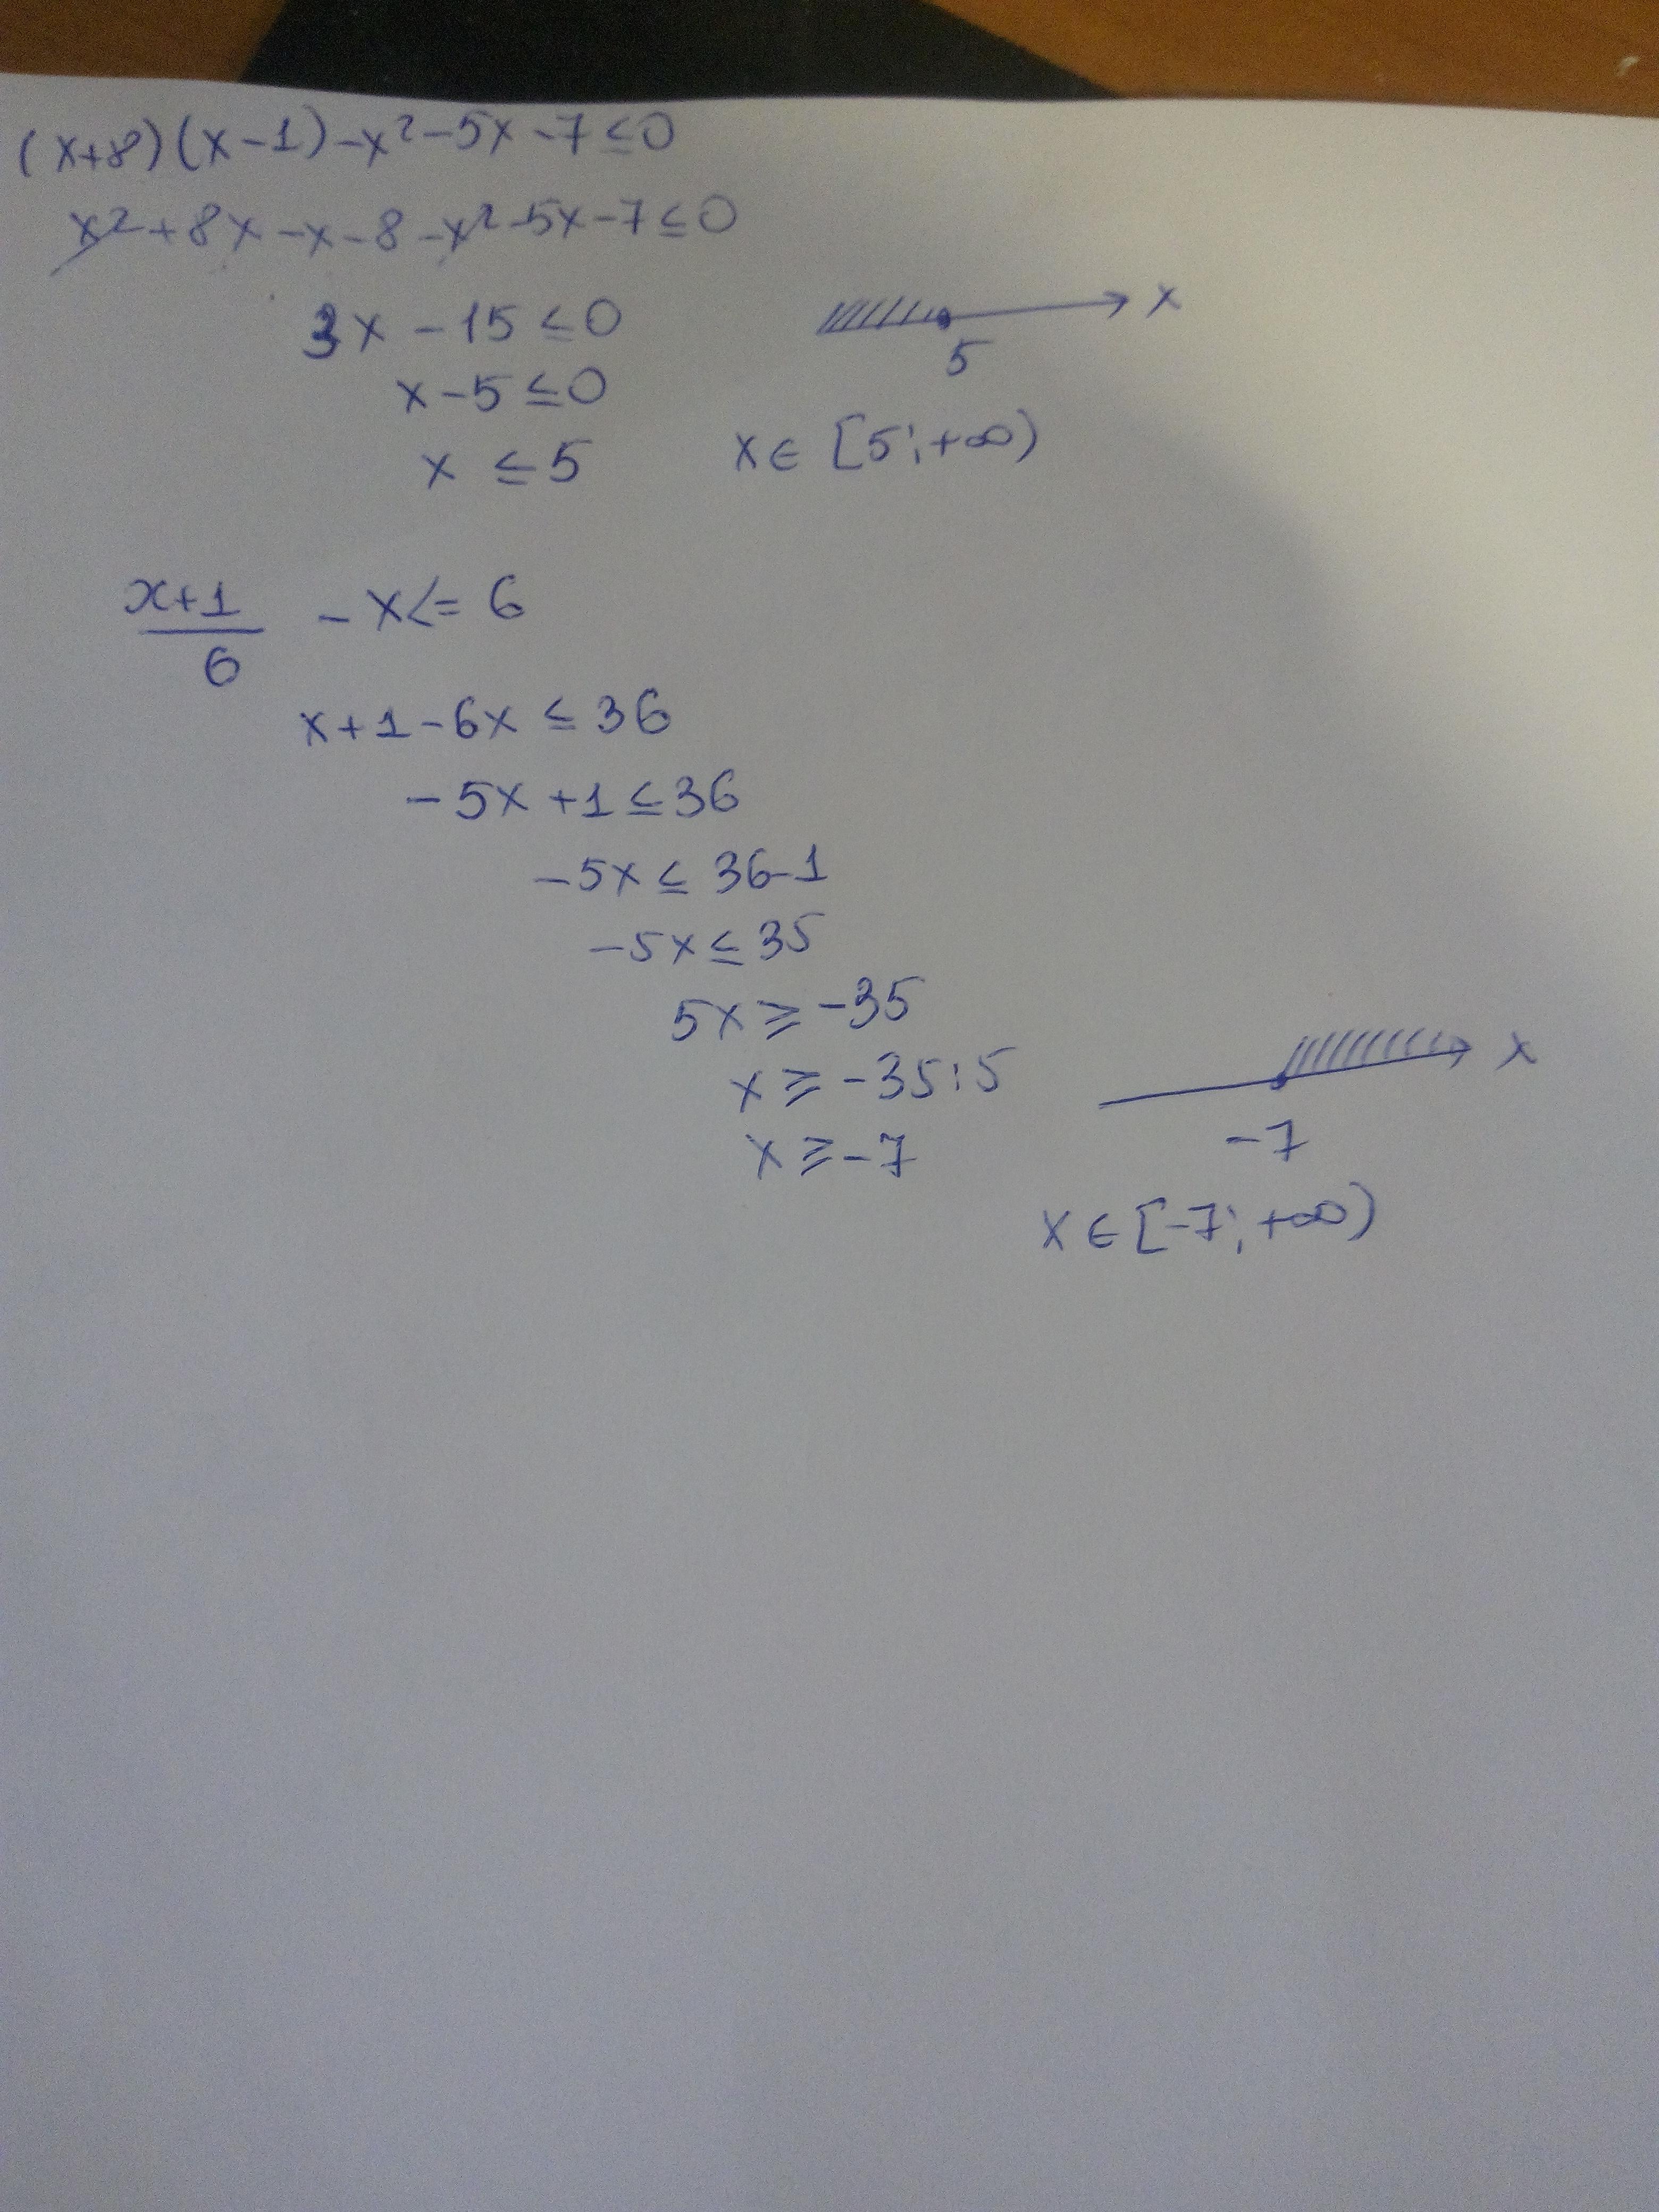 (x+8)(x-1)-x²-5x-7≤0
x²+8x-x-8-x²-5x-7≤0
3x-15≤0
x-5≤0
x≤5
x
5
x∈[5;+∞)
x+1
6
-x<=6
x+1-6x≤36
-5x+1≤36
-5x≤36-1
-5x≤35
5x≥-35
x≥-35:5
x≥-7
x
-7
x∈[-7;+∞)